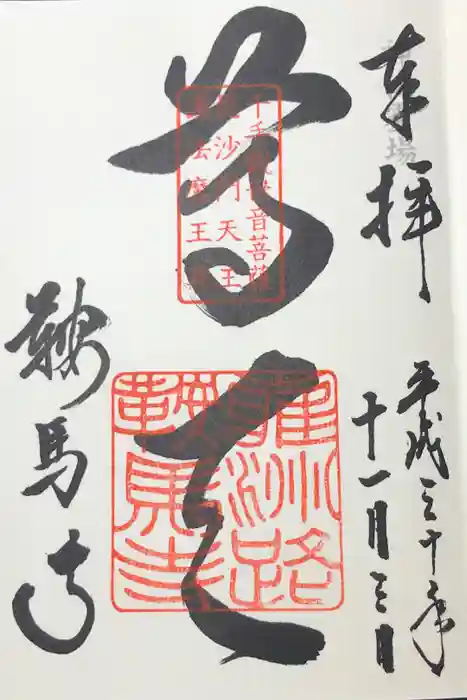 奉拝
平成三十年
十一月三日
尊天
千手観世音菩薩
毘沙門天王
護法魔王尊
雍州路
鞍馬寺
鞍馬寺